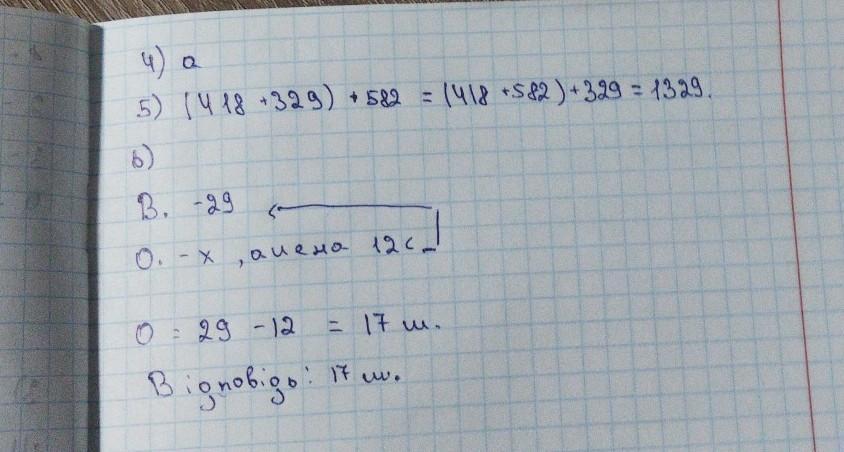 4) a
5) (418 + 329) + 582 = (418 + 582) + 329 = 1329.
6)
В. - 29
О. - х, а 12с
О = 29 - 12 = 17 ш.
Відповідь: 17 ш.